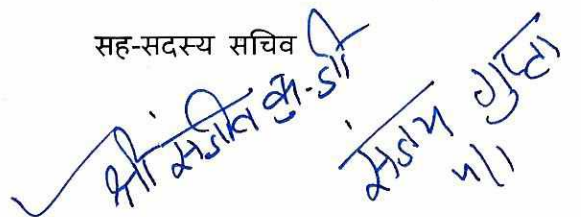 सह-सदस्य सचिव
श्री संजीव कु. जी
संजय गुप्ता